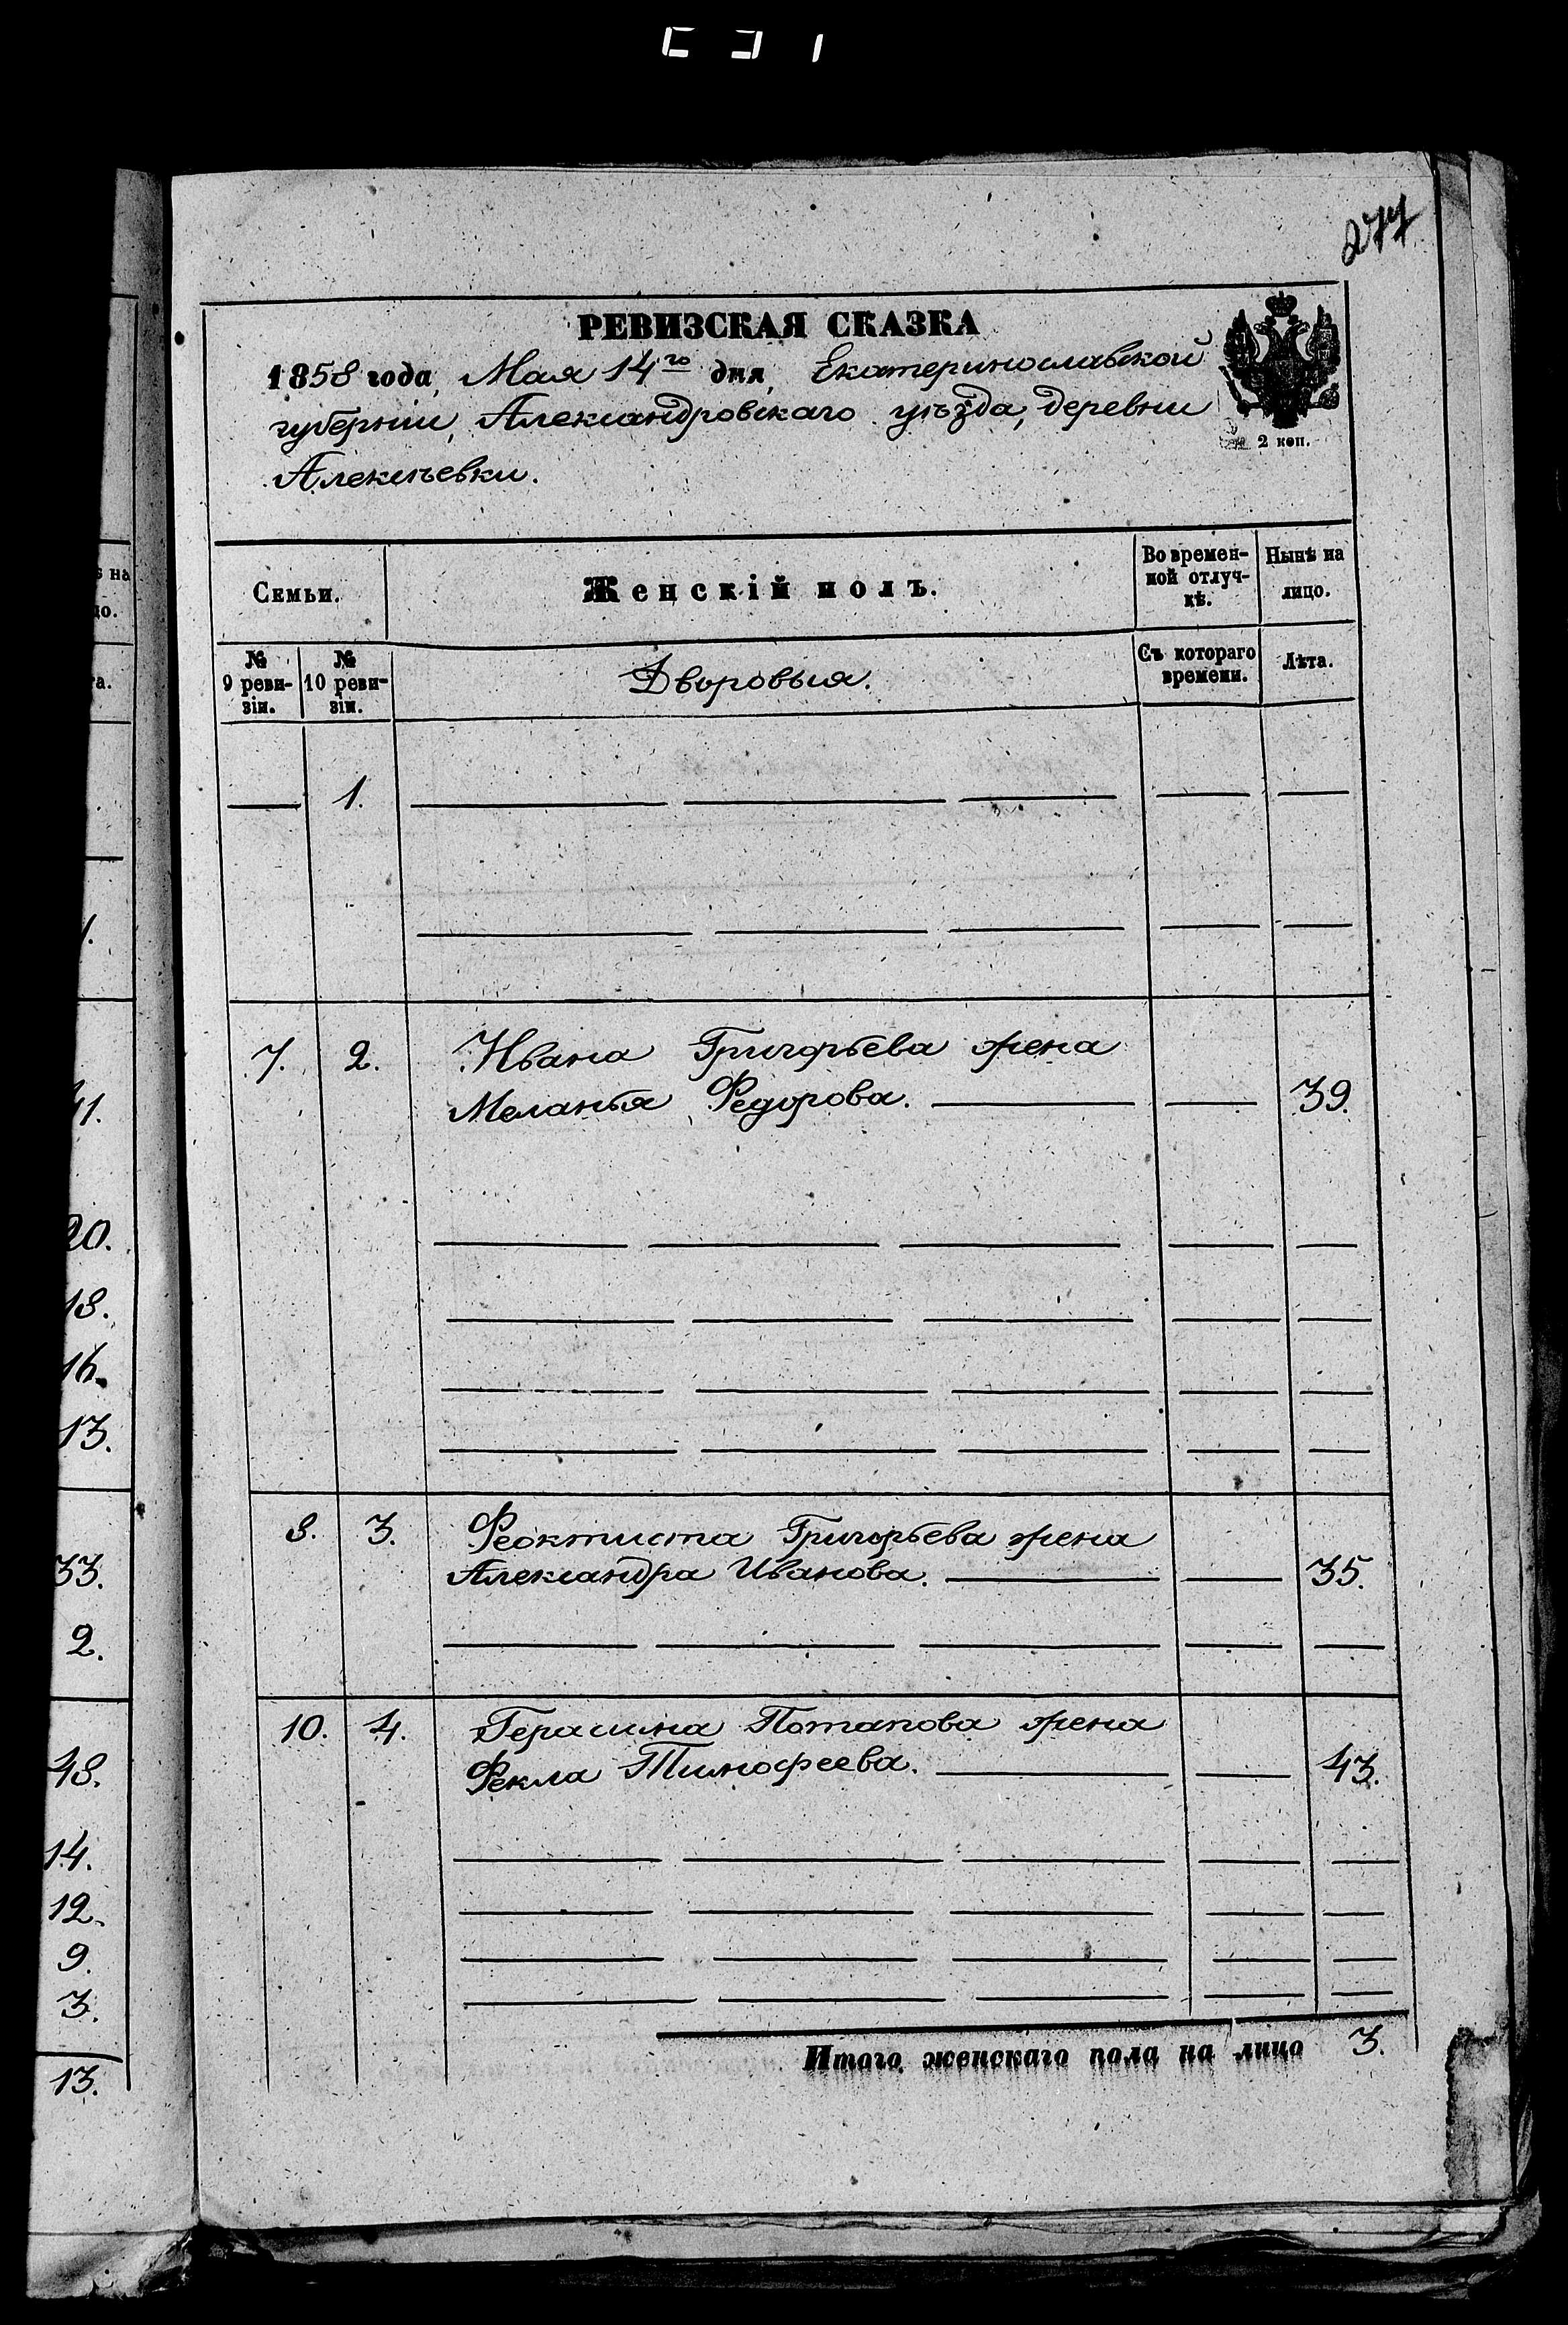 277
РЕВИЗСКАЯ СКАЗКА
1858 года, Мая 14го дня, Екатеринославской
губерніи, Александровскаго уѣзда, деревни
Алексѣевки.
2 коп.
Семьи.
Женскій полъ.
Во времен-
ной отлуч-
кѣ.
Нынѣ на
лицо.
№
9 реви-
зіи.
№
10 реви-
зіи.
Дворовыя.
Съ котораго
времени.
Лѣта.
1.
7. 2. Ивана Григорьева жена
Меланья Федорова. 39.
8. 3. Феоктиста Григорьева жена
Александра Иванова. 35.
10. 4. Герасима Потапова жена
Фекла Тимофеева. 43.
Итого женскаго пола на лицо 3.
на
20.
18.
16.
13.
33.
2.
48.
14.
12.
9.
3.
13.